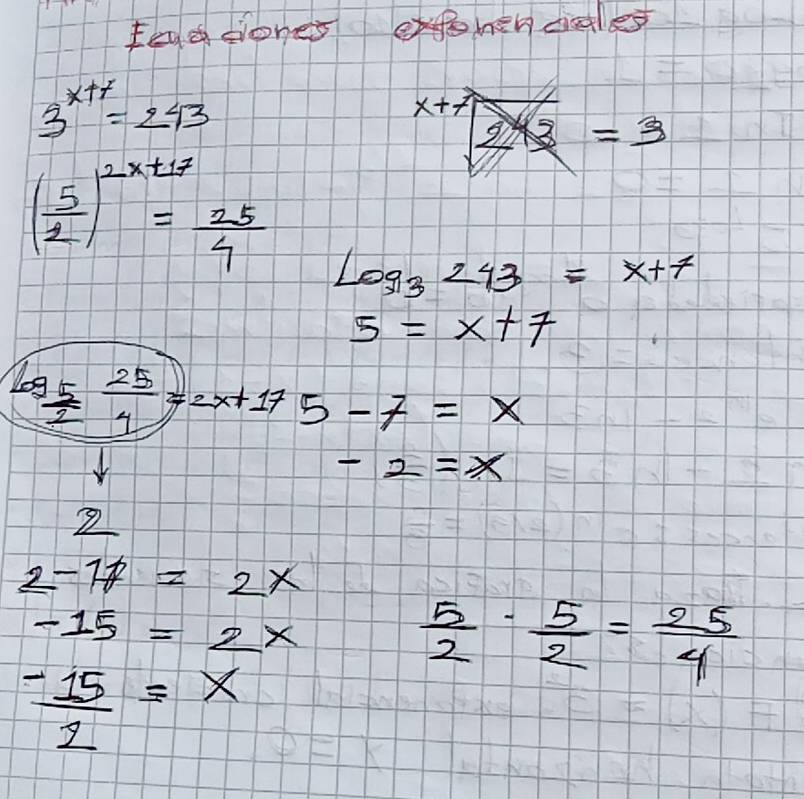 Ecuaciones exponenciales
3^(x+7) = 243
ˣ⁺⁷√243 = 3
(5/2)^(2x+17) = 25/4
Log₃ 243 = x+7
5 = x+7
log_(5/2) 25/4 = 2x+17
5 - 7 = x
- 2 = x
↓
2
2-17 = 2x
-15 = 2x
-15/2 = x
5/2 · 5/2 = 25/4